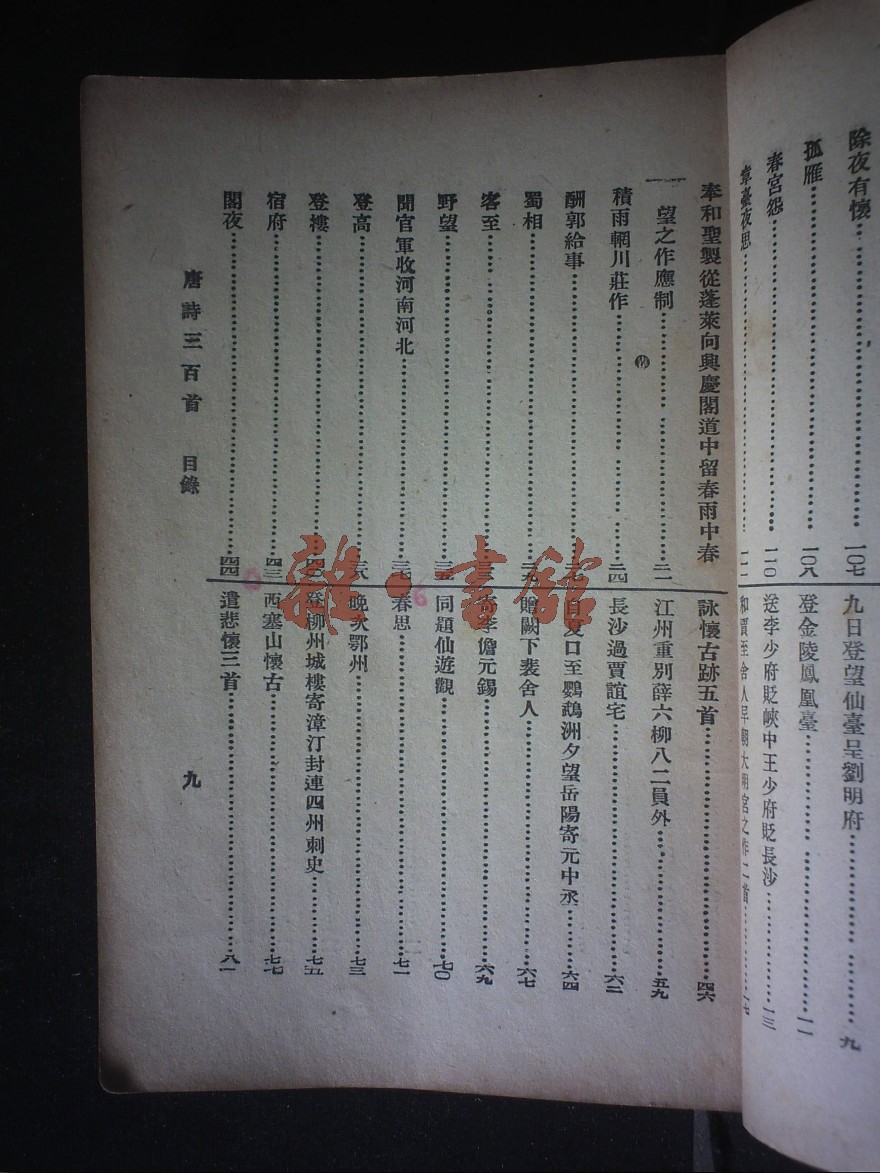 除夜有懷……一〇七
孤雁……一〇八
春宮怨……一一〇
章臺夜思……一一一
九日登望仙臺呈劉明府……九
登金陵鳳凰臺……一一
送李少府貶峽中王少府貶長沙……一三
和賈至舍人早朝大明宮之作二首……一七
奉和聖製從蓬萊向興慶閣道中留春雨中春
望之作應制……二一
積雨輞川莊作……二四
酬郭給事……
蜀相……二九
客至……
野望……
聞官軍收河南河北……
登高……三八
登樓……
宿府……四三
閣夜……四四
詠懷古跡五首……四六
江州重別薛六柳八二員外……五九
長沙過賈誼宅……六二
自夏口至鸚鵡洲夕望岳陽寄元中丞……六四
贈闕下裴舍人……六七
李儋元錫……六九
同題仙遊觀……七〇
春思……七一
晚次鄂州……七三
登柳州城樓寄漳汀封連四州刺史……七五
西塞山懷古……七七
遣悲懷三首……八一
唐詩三百首 目錄
九
雜·書館